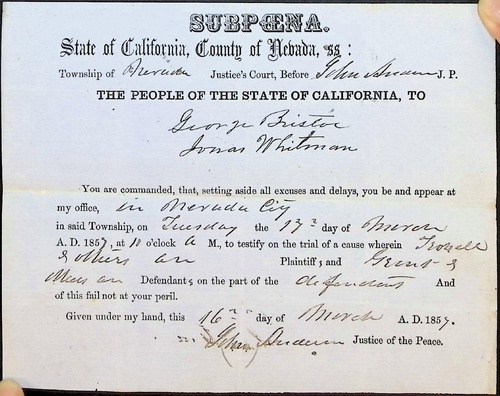 SUBPŒNA.
State of California, County of Nevada, ss:
Township of Nevada Justice's Court, Before John Anderson J. P.
THE PEOPLE OF THE STATE OF CALIFORNIA, TO
George Bristoe
Jonas Whitman
You are commanded, that, setting aside all excuses and delays, you be and appear at
my office, in Nevada City
in said Township, on Tuesday the 17 day of March
A. D. 1857, at 10 o'clock A M., to testify on the trial of a cause wherein
& others are Plaintiffs; and Grent &
others are Defendants on the part of the defendants And
of this fail not at your peril.
Given under my hand, this 16 day of March A. D. 1857.
John Anderson Justice of the Peace.